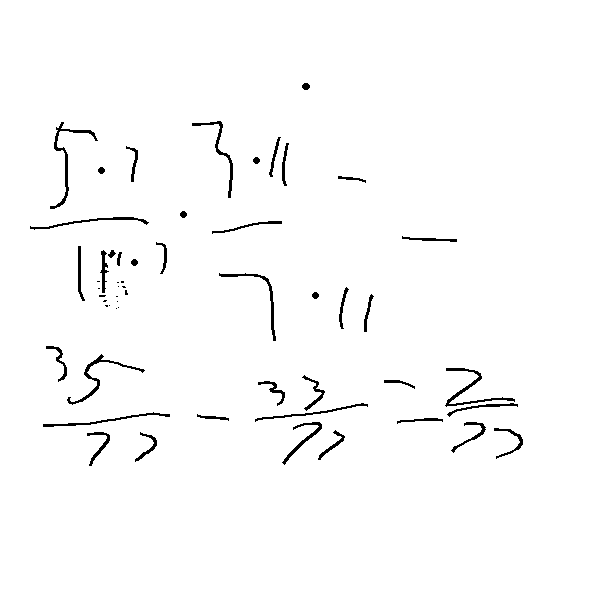 5·7/11·7 · 3·11/7·11 =
35/77 - 33/77 = 2/77